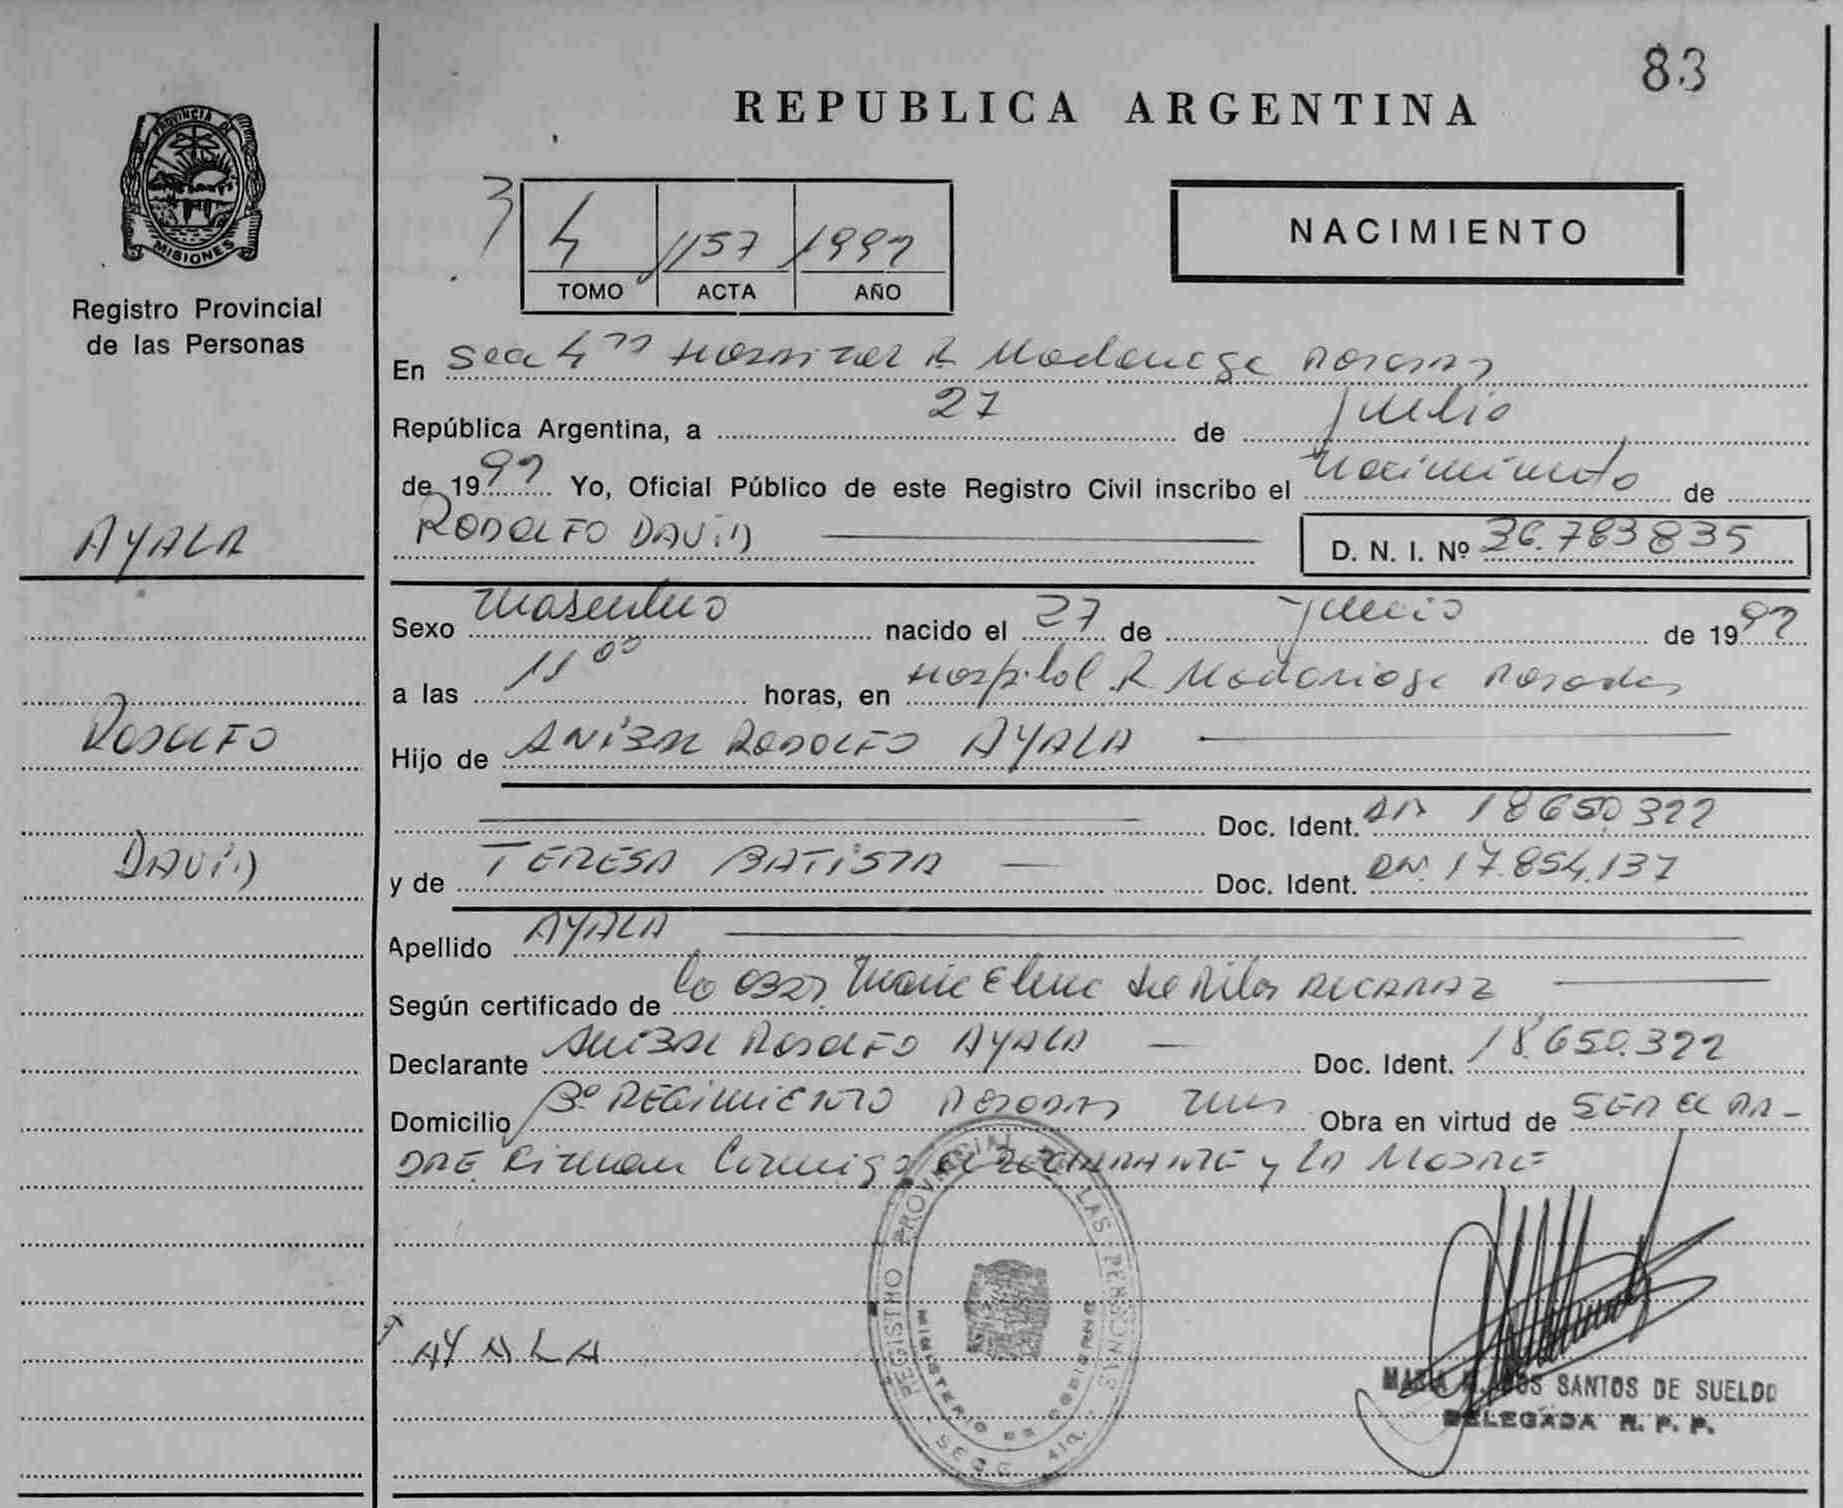 83
REPUBLICA ARGENTINA
PROVINCIA DE
MISIONES
Registro Provincial
de las Personas
NACIMIENTO
4 1157 1992
TOMO ACTA AÑO
En Sec 4 Hospital R Madariaga Posadas
República Argentina, a 27 de Julio
de 1992 Yo, Oficial Público de este Registro Civil inscribo el nacimiento de
RODOLFO DAVID
D. N. I. Nº 36.783835
AYALA
RODOLFO
DAVID
Sexo masculino nacido el 27 de junio de 1992
a las 11 00 horas, en Hospital R Madariaga Posadas
Hijo de ANIBAL RODOLFO AYALA
Doc. Ident. 18650322
y de TERESA BATISTA Doc. Ident. DN. 17.854.137
Apellido AYALA
Según certificado de la Obst. Maria Elena del Pilar ALCARAZ
Declarante ANIBAL RODOLFO AYALA Doc. Ident. 18.650.322
Domicilio 3º REGIMIENTO POSADAS Mnes Obra en virtud de SER EL PA-
DRE Firman Conmigo el DECLARANTE y LA MADRE
AYALA
REGISTRO PROVINCIAL DE LAS PERSONAS
MINISTERIO DE GOBIERNO
SECC. 4ta.
MARIA DOS SANTOS DE SUELDO
DELEGADA R. P. P.